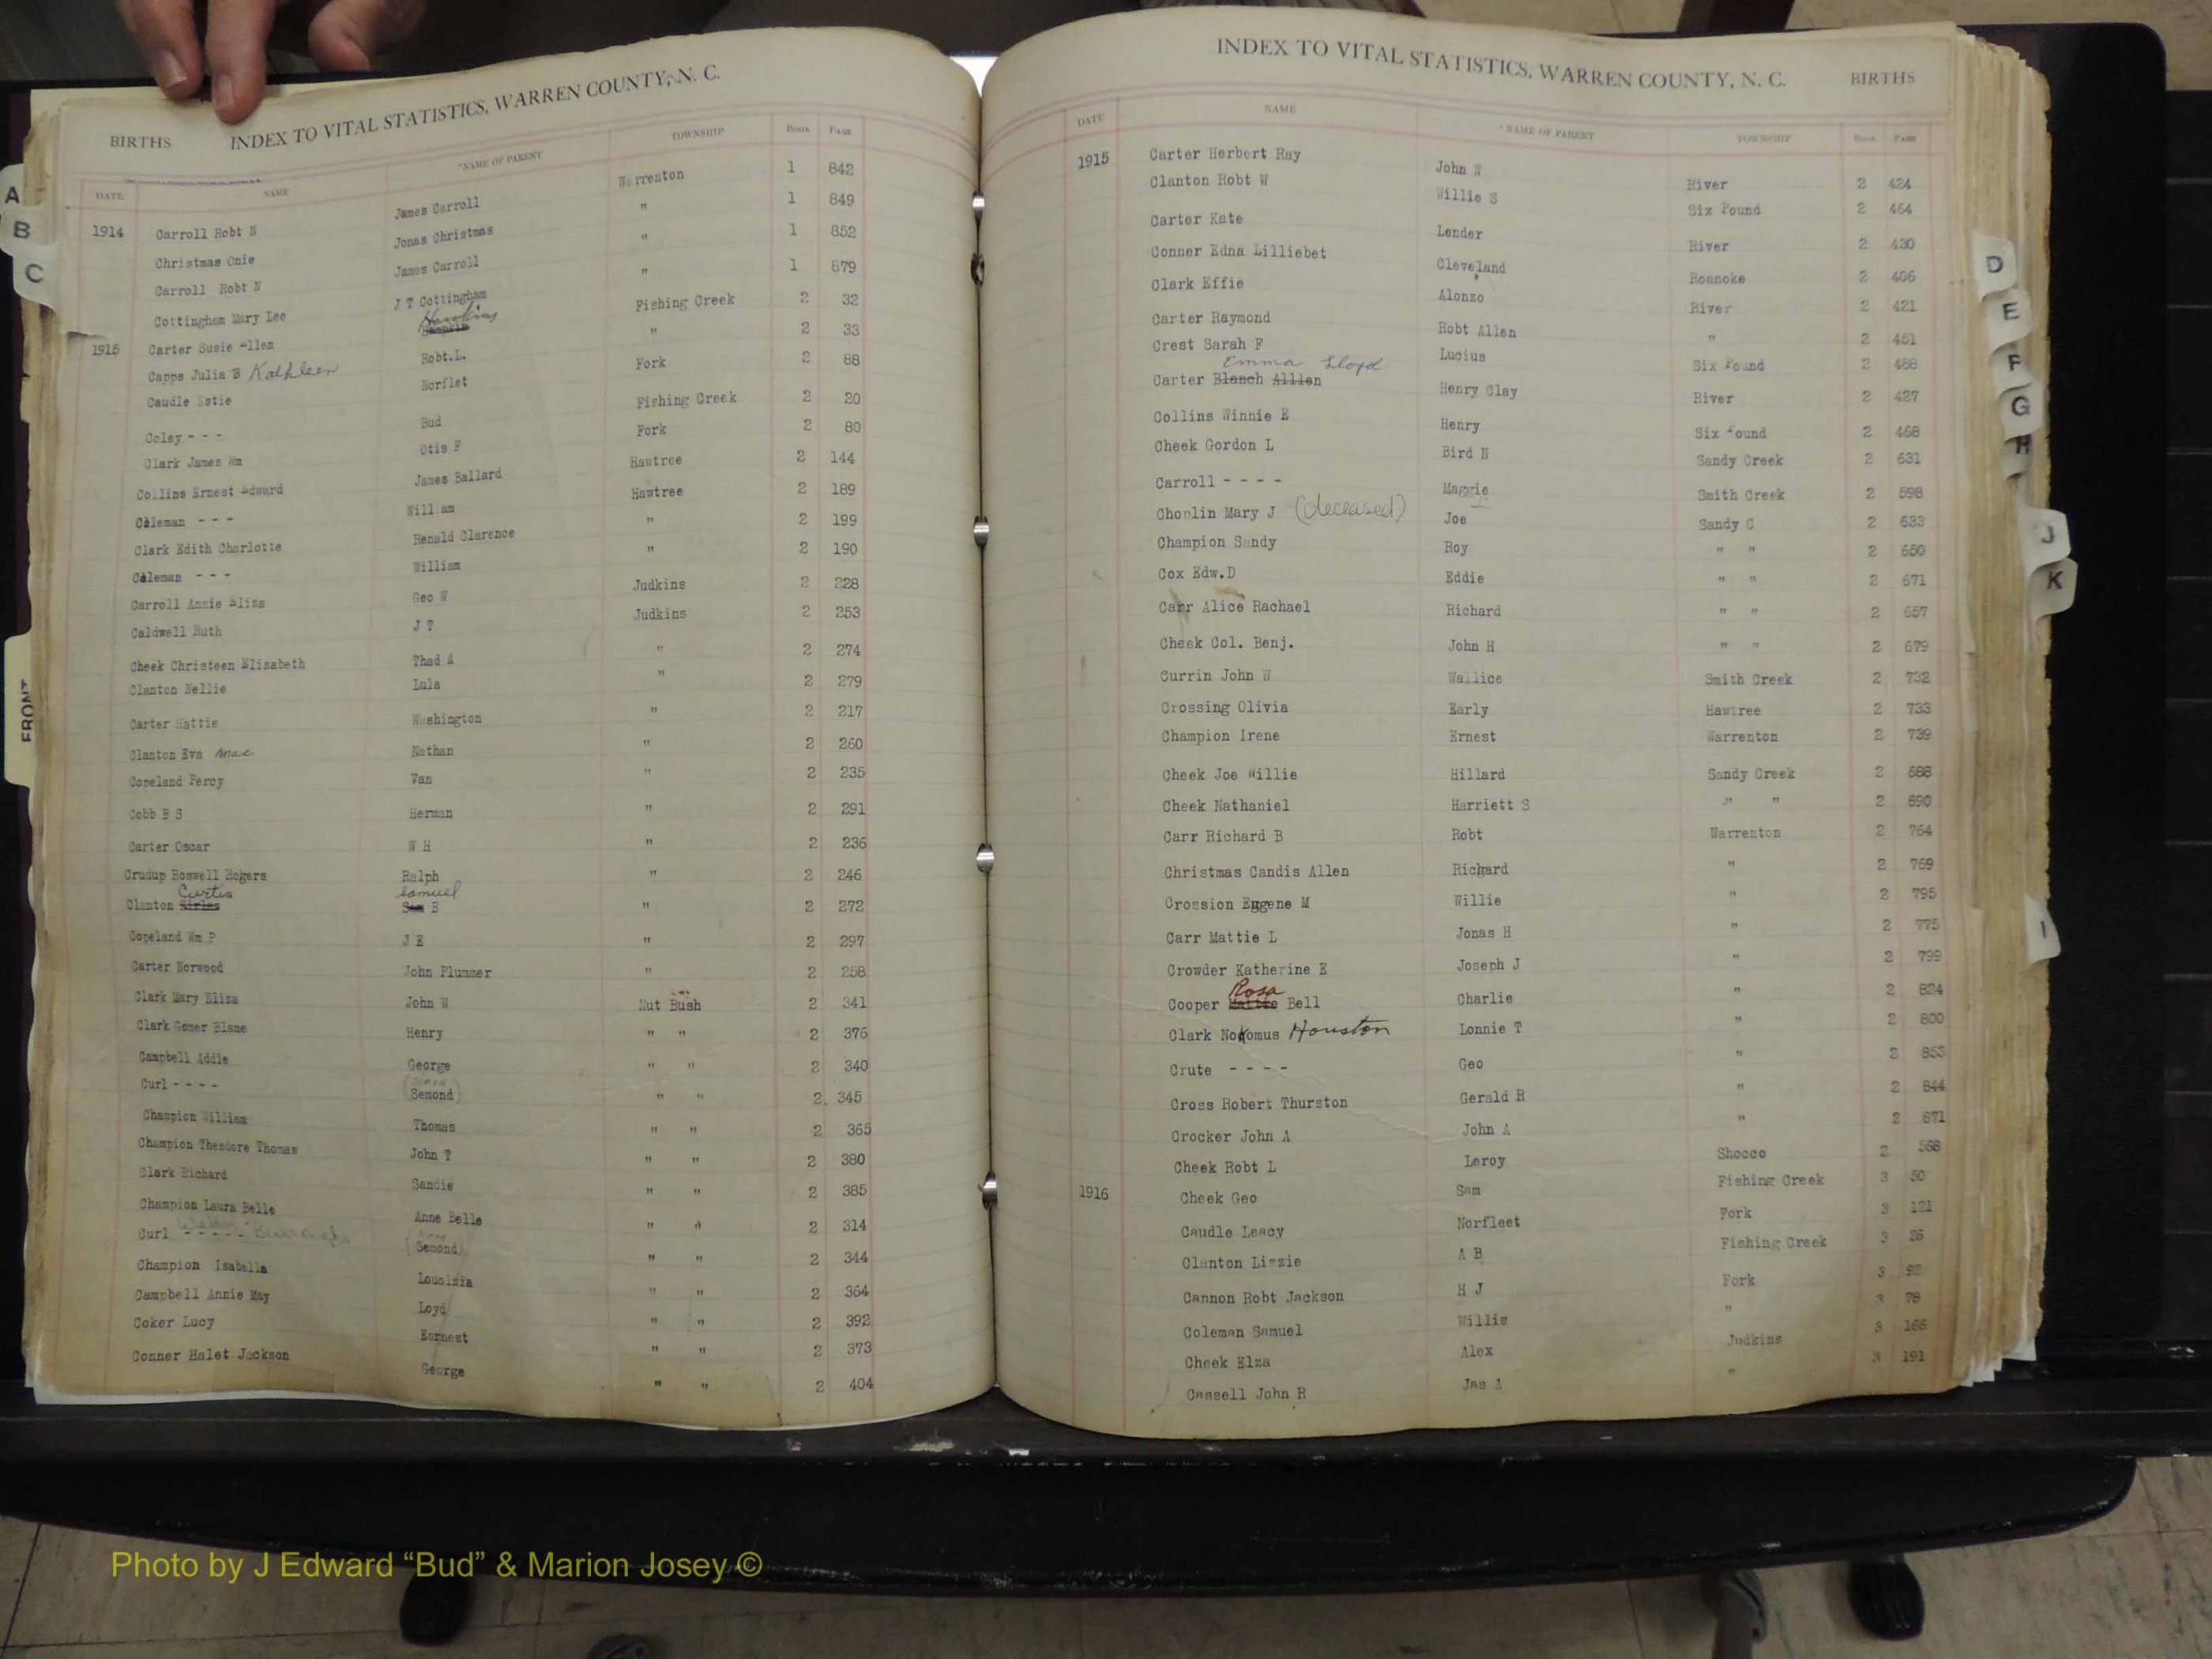 INDEX TO VITAL STATISTICS, WARREN COUNTY, N. C.
BIRTHS
DATE NAME *NAME OF PARENT TOWNSHIP BOOK PAGE
1914 Carroll Robt N James Carroll Warrenton 1 842
Christmas Onie Jonas Christmas " 1 849
Carroll Robt N James Carroll " 1 852
Cottingham Mary Lee J T Cottingham " 1 879
1915 Carter Susie Allen Hawkins Fishing Creek 2 32
Capps Julia B Kathleen Robt.L. " 2 33
Caudle Estie Norflet Fork 2 88
Coley - - - Bud Fishing Creek 2 20
Clark James Wm Otis F Fork 2 80
Collins Ernest Edward James Ballard Hawtree 2 144
Coleman - - - William Hawtree 2 189
Clark Edith Charlotte Renald Clarence " 2 199
Coleman - - - William " 2 190
Carroll Annie Eliza Geo W Judkins 2 228
Caldwell Ruth J T Judkins 2 253
Cheek Christeen Elizabeth Thad A " 2 274
Clanton Nellie Lula " 2 279
Carter Hattie Washington " 2 217
Clanton Eva Mae Nathan " 2 260
Copeland Percy Van " 2 235
Cobb B S Herman " 2 291
Carter Oscar W H " 2 236
Crudup Roswell Rogers Ralph " 2 246
Clanton Curtis Samuel Sam B " 2 272
Copeland Wm P J E " 2 297
Carter Norwood John Plummer " 2 258
Clark Mary Eliza John W Nut Bush 2 341
Clark Gomer Blame Henry " " 2 376
Campbell Addie George " " 2 340
Curl - - - - (Semond) " " 2 345
Champion William Thomas " " 2 365
Champion Thesdore Thomas John T " " 2 380
Clark Richard Sandie " " 2 385
Champion Laura Belle Anne Belle " " 2 314
Curl - - - - - (Semond) " " 2 344
Champion Isabella Louoinia " " 2 364
Campbell Annie May Loyd " " 2 392
Coker Lucy Earnest " " 2 373
Conner Halet Jackson George " " 2 404
INDEX TO VITAL STATISTICS, WARREN COUNTY, N. C. BIRTHS
DATE NAME *NAME OF PARENT TOWNSHIP BOOK PAGE
1915 Carter Herbert Ray John W River 2 424
Clanton Robt W Willie S Six Pound 2 464
Carter Kate Lender River 2 430
Conner Edna Lilliebet Cleveland Roanoke 2 406
Clark Effie Alonzo River 2 421
Carter Raymond Robt Allen " 2 451
Crest Sarah F Lucius Six Pound 2 488
Emma Lloyd
Carter Blanch Alllen Henry Clay River 2 427
Collins Winnie E Henry Six Pound 2 468
Cheek Gordon L Bird N Sandy Creek 2 631
Carroll - - - - Maggie Smith Creek 2 598
Choplin Mary J (deceased) Joe Sandy C 2 633
Champion Sandy Roy " " 2 650
Cox Edw.D Eddie " " 2 671
Carr Alice Rachael Richard " " 2 657
Cheek Col. Benj. John H " " 2 679
Currin John W Wallice Smith Creek 2 732
Crossing Olivia Early Hawtree 2 733
Champion Irene Ernest Warrenton 2 739
Cheek Joe Willie Hillard Sandy Creek 2 688
Cheek Nathaniel Harriett S " " 2 690
Carr Richard B Robt Warrenton 2 764
Christmas Candis Allen Richard " 2 769
Crossion Eugene M Willie " 2 795
Carr Mattie L Jonas H " 2 775
Crowder Katherine E Joseph J " 2 799
Rosa
Cooper Mattie Bell Charlie " 2 824
Clark Nokomus Houston Lonnie T " 2 800
Crute - - - - Geo " 2 853
Cross Robert Thurston Gerald R " 2 844
Crocker John A John A " 2 871
Cheek Robt L Leroy Shocco 2 568
1916 Cheek Geo Sam Fishing Creek 3 50
Caudle Leacy Norfleet Fork 3 121
Clanton Lizzie A B Fishing Creek 3 26
Cannon Robt Jackson H J Fork 3 92
Coleman Samuel Willis " 3 78
Cheek Elza Alex Judkins 3 166
Cassell John R Jas A " 3 191
A
B
C
FRONT
D
E
F
G
H
J
K
I
Photo by J Edward “Bud” & Marion Josey ©